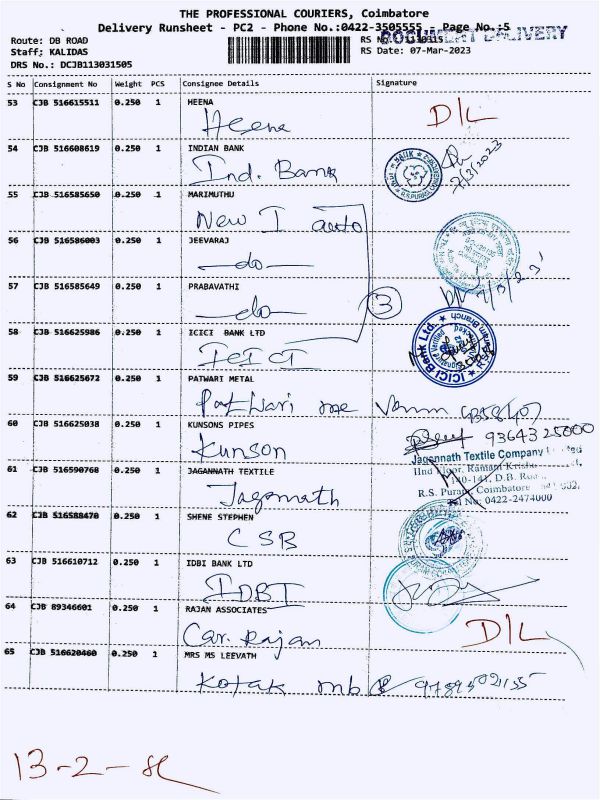 THE PROFESSIONAL COURIERS, Coimbatore
Delivery Runsheet - PC2 - Phone No.:0422-3505555 - Page No.:5
DOCUMENT DELIVERY
Route: DB ROAD
Staff; KALIDAS
RS Date: 07-Mar-2023
DRS No.: DCJB113031505
S No Consignment No Weight PCS Consignee Details Signature
53 CJB 516615511 0.250 1 HEENA
Heena D/L
54 CJB 516608619 0.250 1 INDIAN BANK
Ind. Bank 7/3/2023
55 CJB 516585650 0.250 1 MARIMUTHU
New I auto
56 CJB 516586003 0.250 1 JEEVARAJ
-do-
57 CJB 516585649 0.250 1 PRABAVATHI
-do- 3 7/3/23
58 CJB 516625986 0.250 1 ICICI BANK LTD
ICICI ICICI Bank Ltd.
59 CJB 516625672 0.250 1 PATWARI METAL
Patwari me
60 CJB 516625038 0.250 1 KUNSONS PIPES
Kunson 9364325000
61 CJB 516590768 0.250 1 JAGANNATH TEXTILE
Jagannath
Jagannath Textile Company
R.S. Puram, Coimbatore
Tel No: 0422-2474000
62 CJB 516588470 0.250 1 SHENE STEPHEN
CSB
63 CJB 516610712 0.250 1 IDBI BANK LTD
IDBI
64 CJB 89346601 0.250 1 RAJAN ASSOCIATES
Car. Rajan D/L
65 CJB 516620460 0.250 1 MRS MS LEEVATH
Kotak mb
13-2-